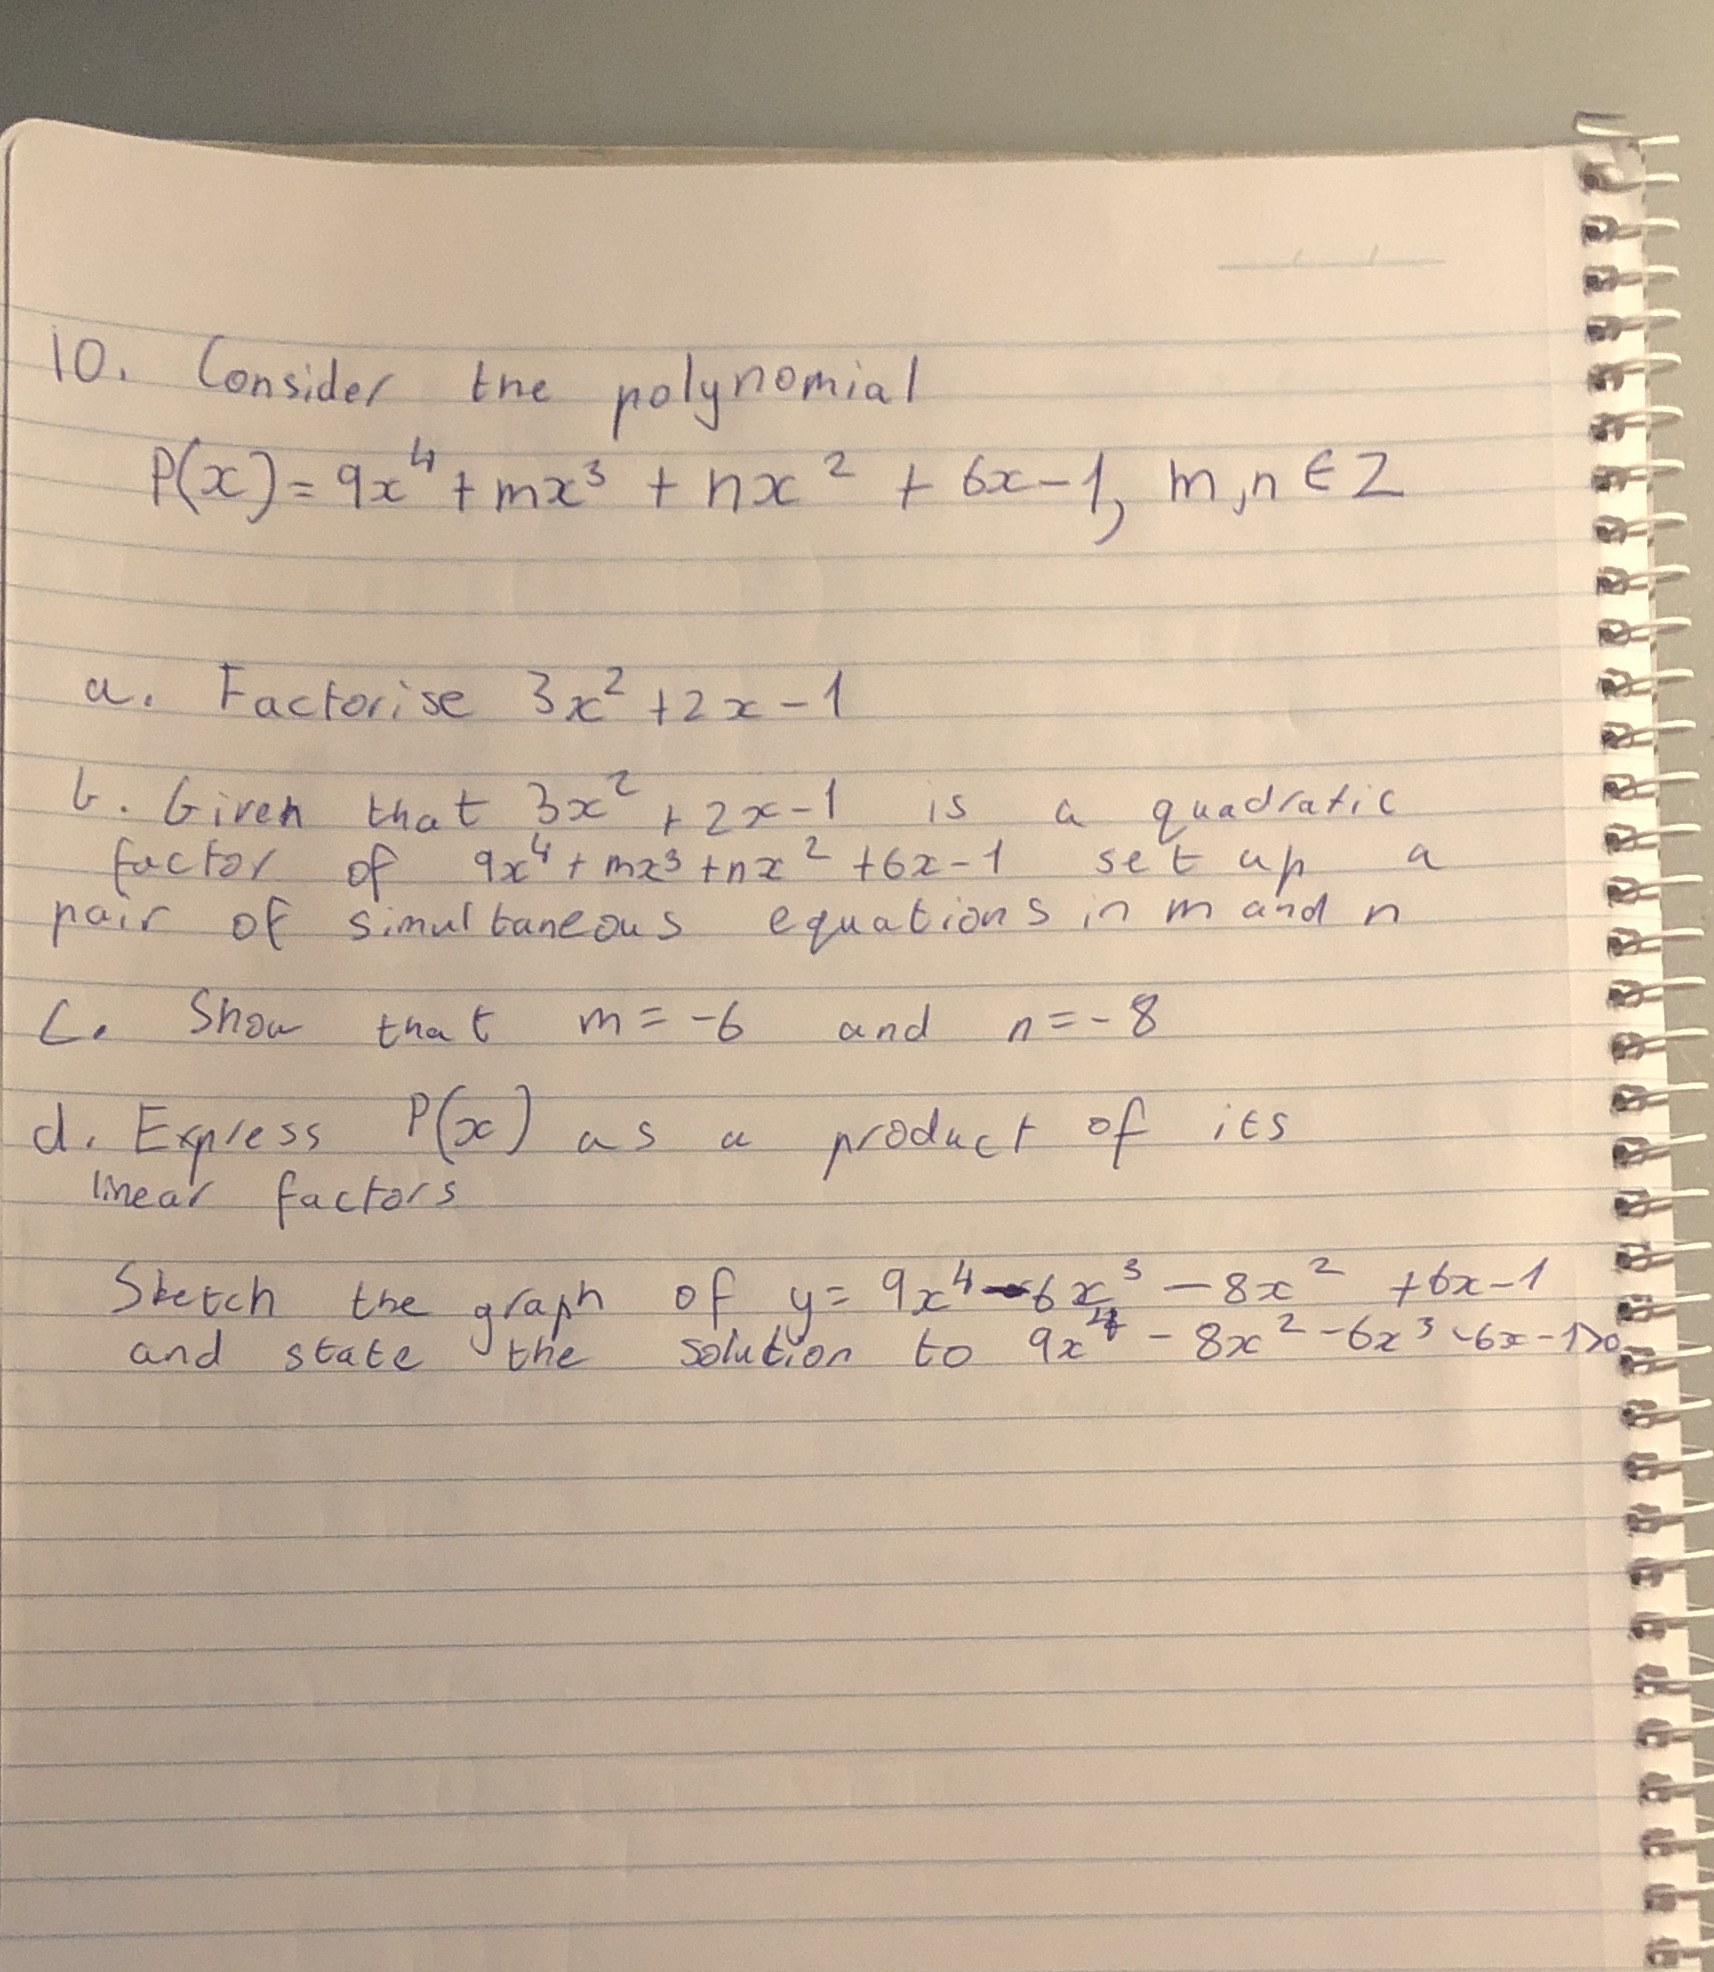 10. Consider the polynomial
P(x) = 9x⁴ + mx³ + nx² + 6x-1, m,n ∈ Z
a. Factorise 3x² +2x-1
b. Given that 3x² + 2x-1 is a quadratic
factor of 9x⁴ + mx³ +nx² +6x-1 set up a
pair of simultaneous equations in m and n
c. Show that m = -6 and n = -8
d. Express P(x) as a product of its
linear factors
Sketch the graph of y = 9x⁴-6x³ - 8x² +6x-1
and state the solution to 9x⁴ - 8x² -6x³ -6x -1>0